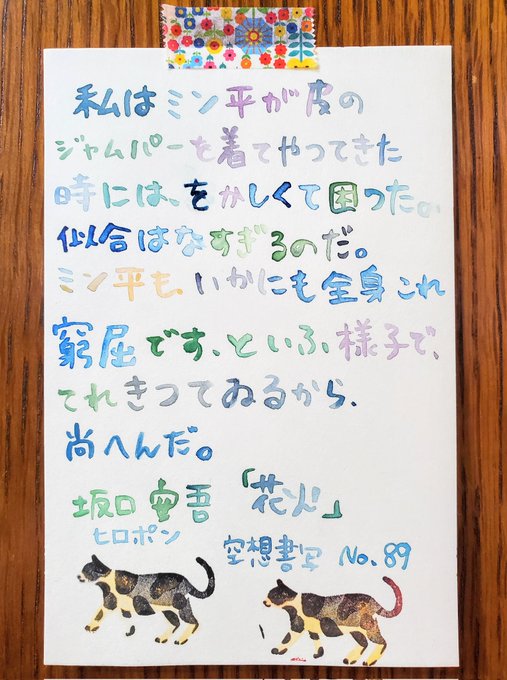 私はミン平が皮の
ジャムパーを着てやつてきた
時には、をかしくて困つた。
似合はなすぎるのだ。
ミン平も、いかにも全身これ
窮屈です、といふ様子で、
てれきつてゐるから、
尚へんだ。
坂口安吾 「花火」
ヒロポン
空想書写 No.89